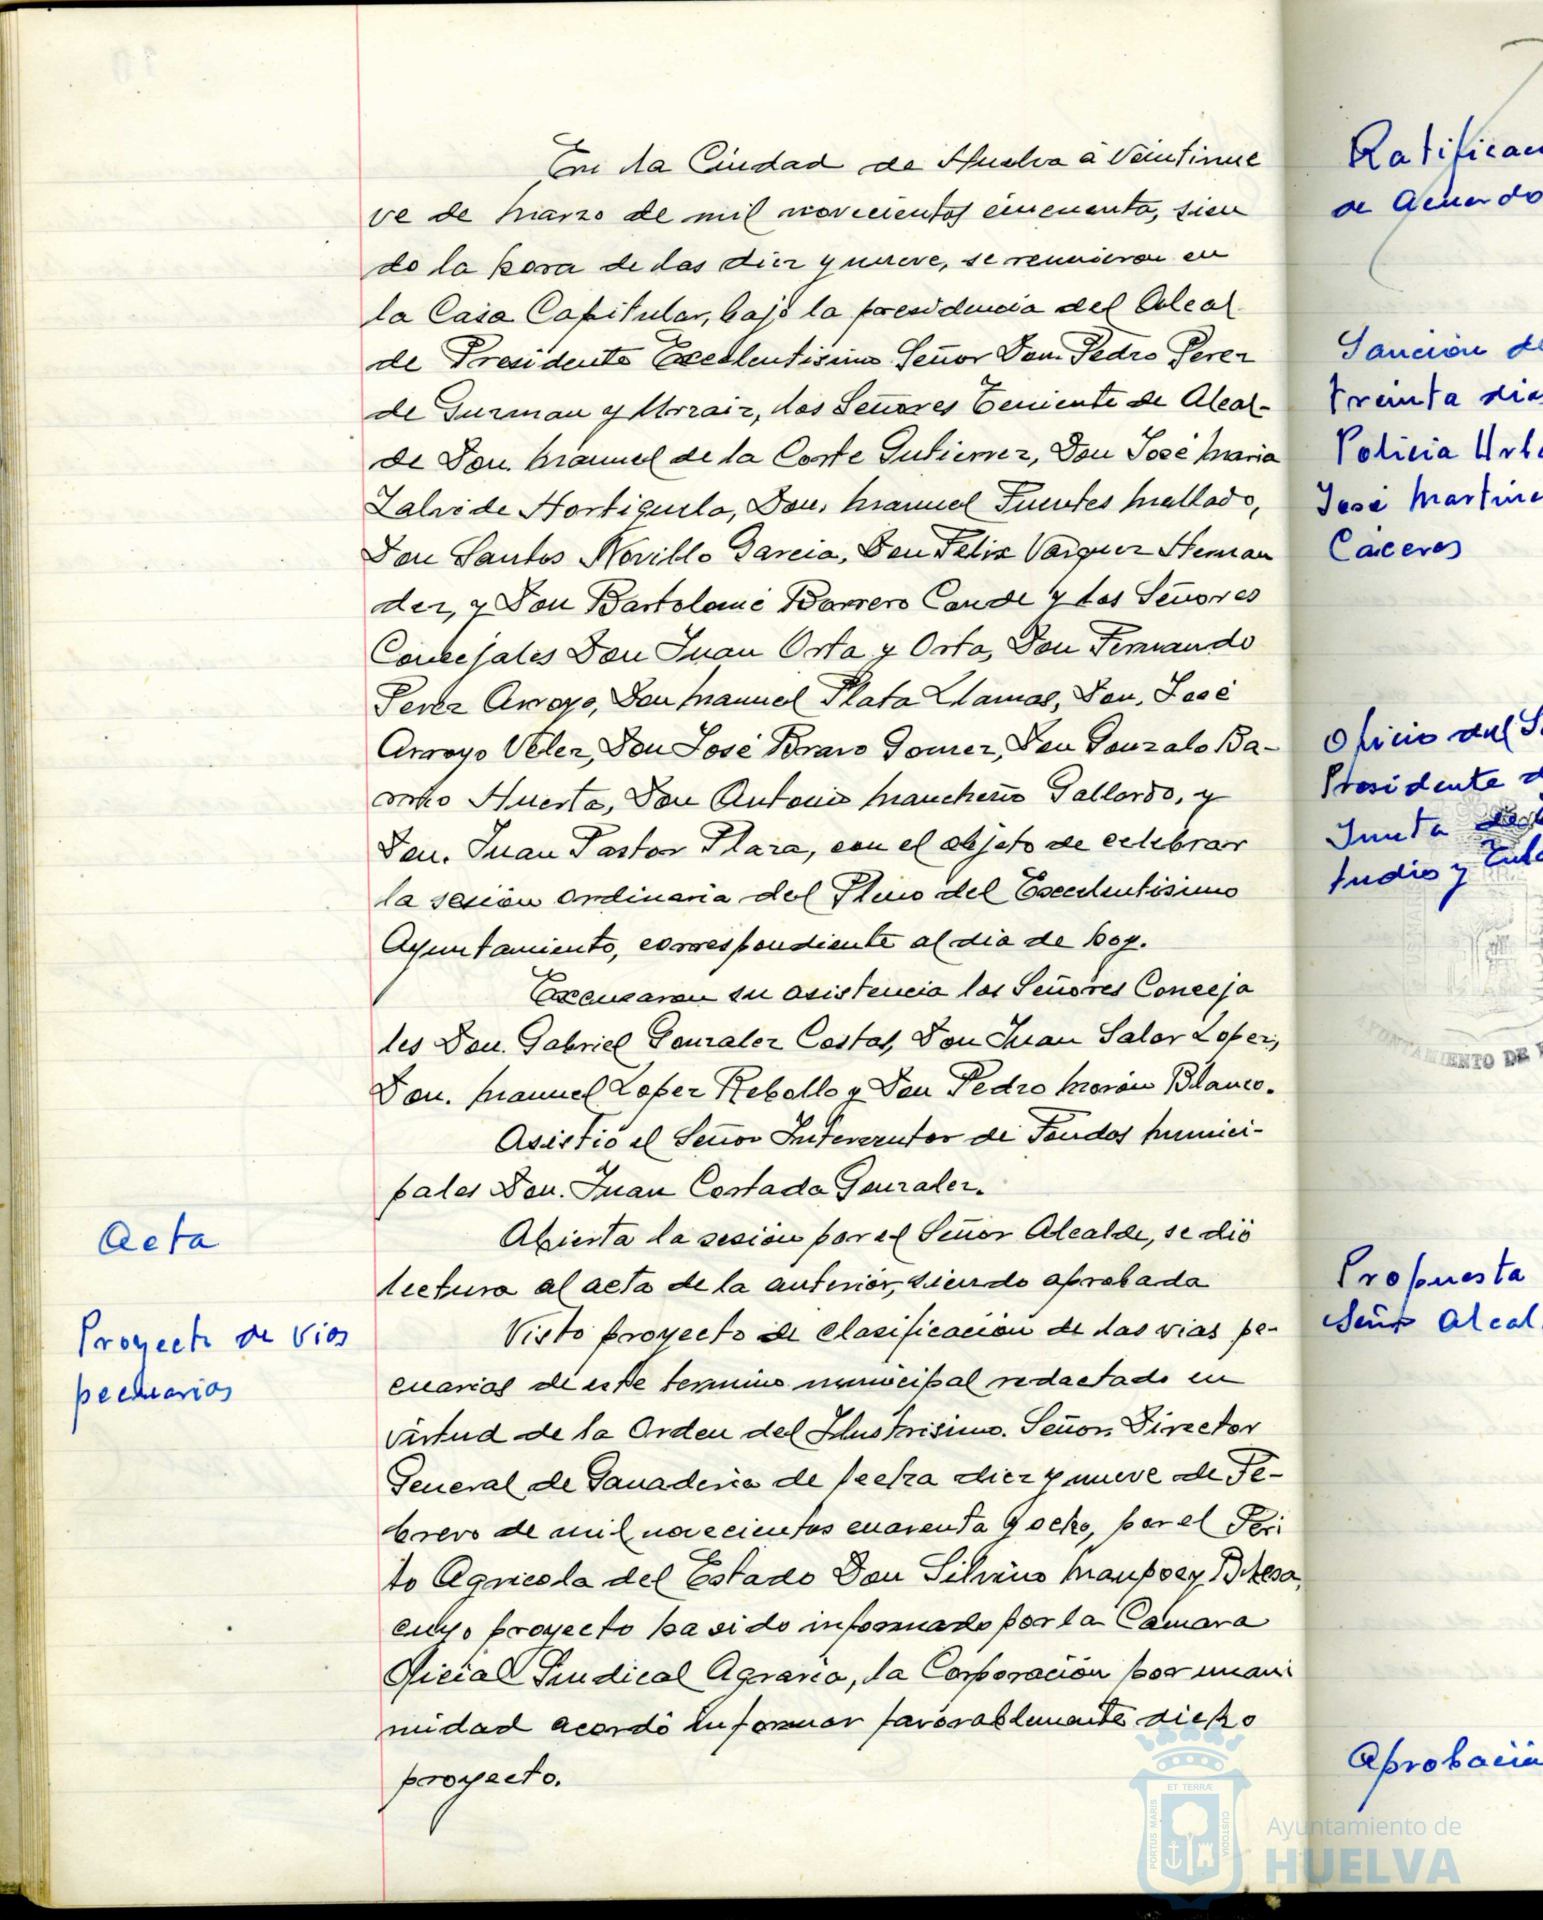 En la Ciudad de Huelva á veintinue
ve de marzo de mil novecientos cincuenta, sien
do la hora de las diez y nueve, se reunieron en
la Casa Capitular, bajo la presidencia del Alcal
de Presidente Excelentisimo Señor Don Pedro Perez
de Guzman y Urzaiz, los Señores Teniente de Alcal-
de Don Manuel de la Corte Gutierrez, Don José Maria
Zalvide Hortiguela, Don Manuel Fuentes Mallado,
Don Santos Novillo Garcia, Don Felix Vazquez Hernan
dez, y Don Bartolomé Borrero Conde y los Señores
Concejales Don Juan Orta y Orta, Don Fernando
Perez Arroyo, Don Manuel Plata Llamas, Don José
Arroyo Velez, Don José Bravo Gomez, Don Gonzalo Ba-
rrio Huerta, Don Antonio Mancheño Gallardo, y
Don Juan Pastor Plaza, con el objeto de celebrar
la sesión ordinaria del Pleno del Excelentisimo
Ayuntamiento, correspondiente al dia de hoy.
Excusaron su asistencia los Señores Conceja
les Don Gabriel Gonzalez Costas, Don Juan Salor Lopez,
Don Manuel Lopez Rebollo y Don Pedro Morón Blanco.
Asistió el Señor Interventor de Fondos Munici-
pales Don Juan Costada Gonzalez.
Acta
Abierta la sesión por el Señor Alcalde, se dió
lectura al acta de la anterior, siendo aprobada
Proyecto de vias
pecuarias
Visto proyecto de clasificación de las vias pe-
cuarias de este termino municipal redactado en
virtud de la Orden del Ilustrisimo Señor Director
General de Ganaderia de fecha diez y nueve de Fe-
brero de mil novecientos cuarenta y ocho, por el Peri
to Agricola del Estado Don Silvino Maupoey Blesa,
cuyo proyecto ha sido informado por la Camara
Oficial Sindical Agraria, la Corporación por unani
midad acordó informar favorablemente dicho
proyecto.
Ratificaci
de acuerdo
Sanción de
treinta dias
Policia Urb
José Martine
Cáceres
Oficio del S
Presidente d
Junta de
tudio y
Propuesta
Señor Alcal
Aprobació
AYUNTAMIENTO DE
ET TERRÆ
PORTUS MARIS
CUSTODIA
Ayuntamiento de
HUELVA